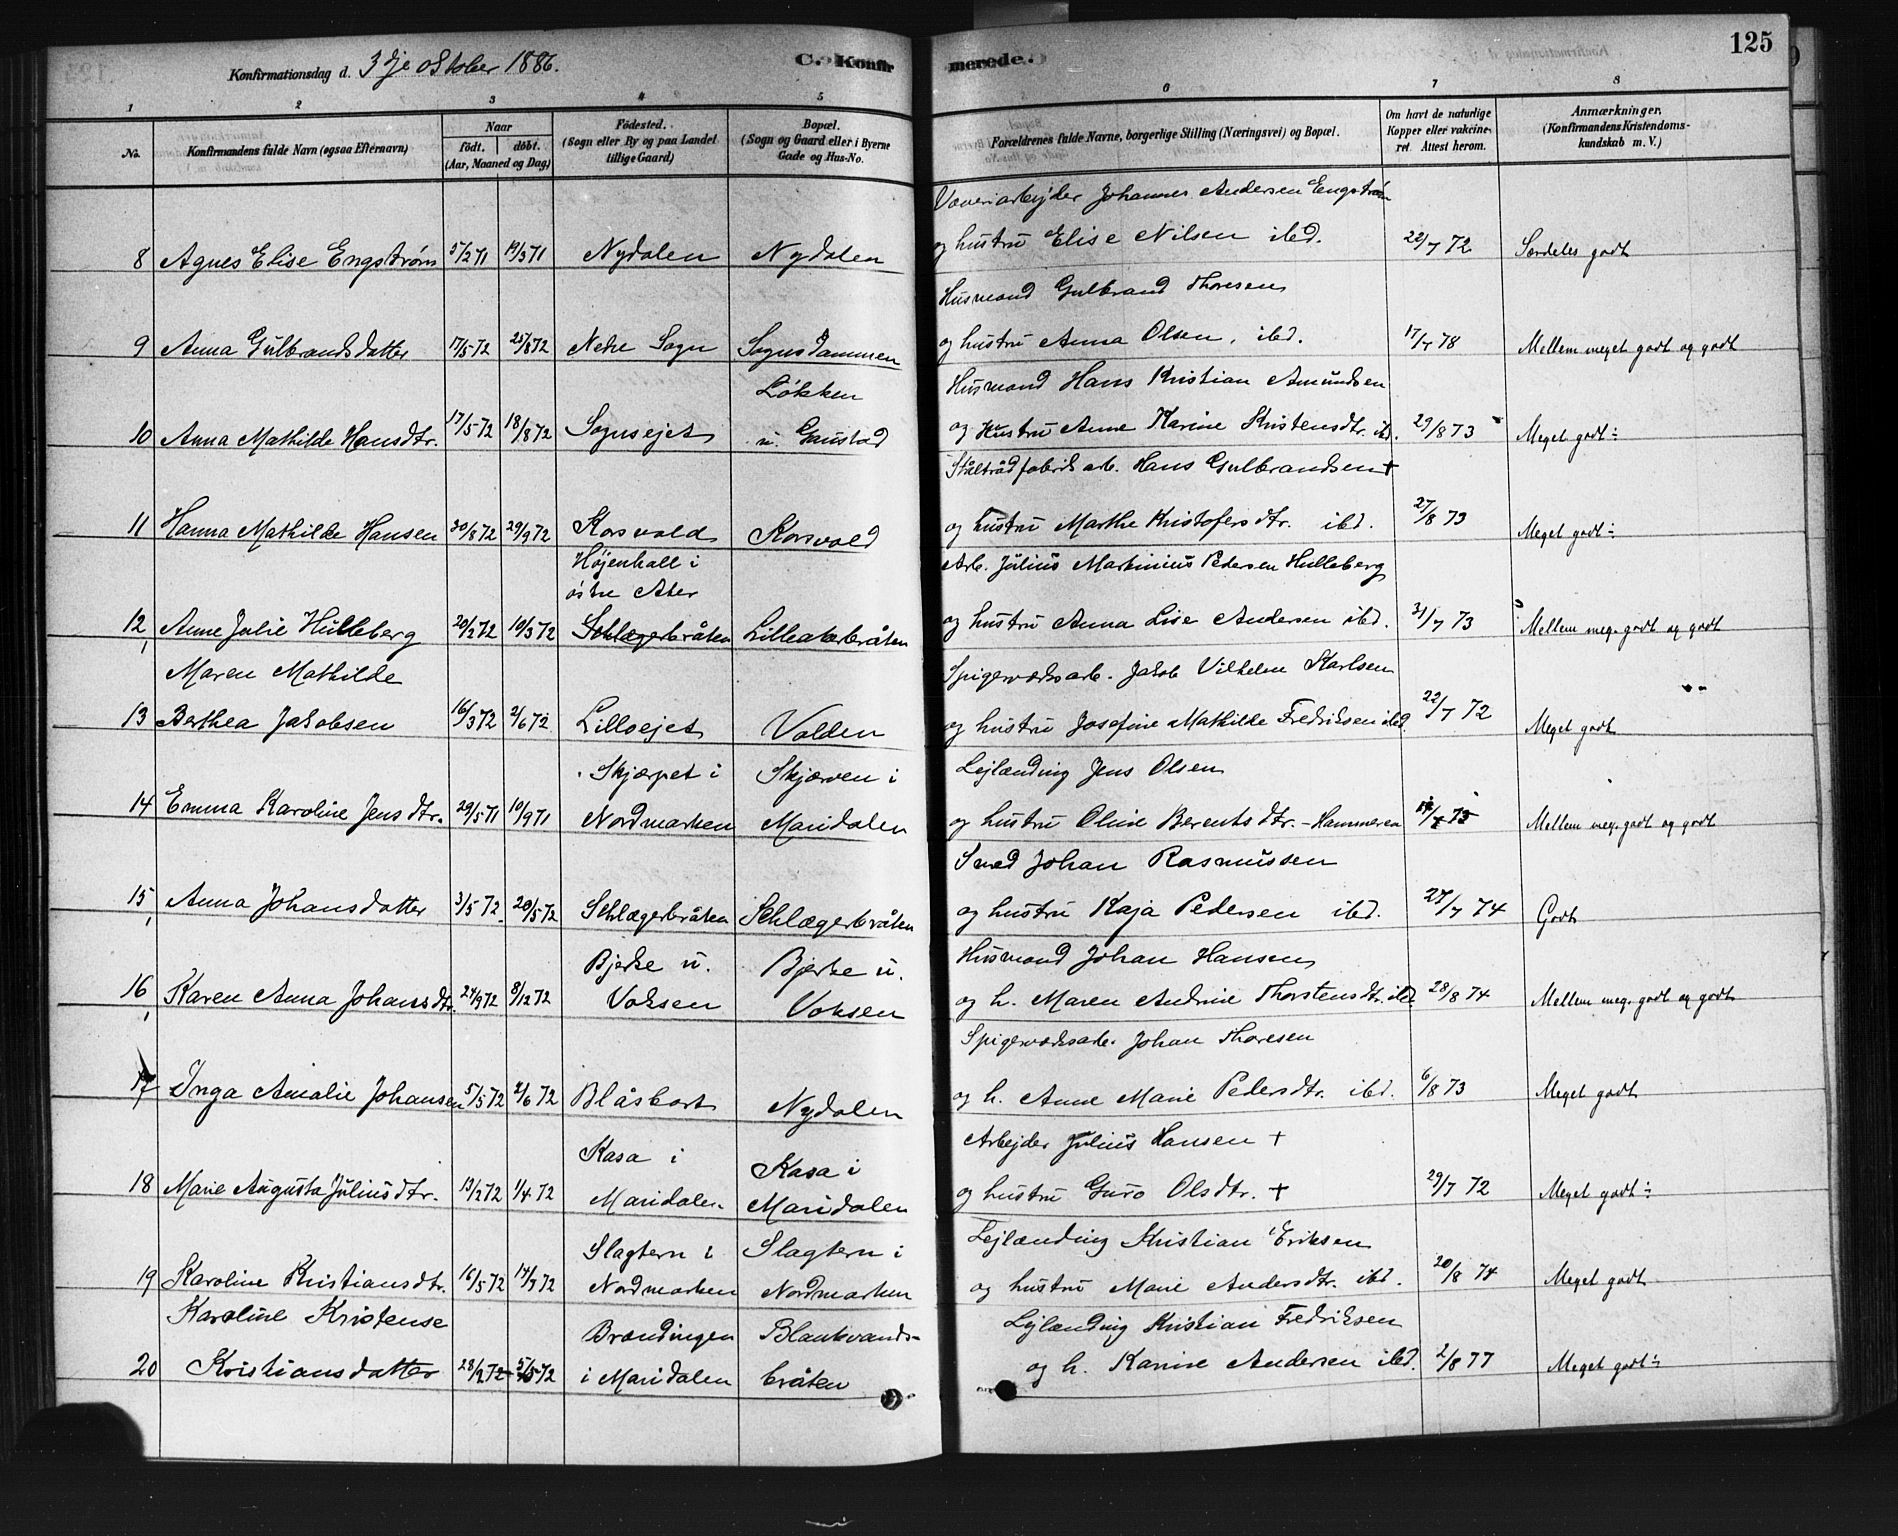 Konfirmationsdag d. 3dje oktober 1886.
C. Konfirmerede.
125
1 2 3 4 5 6 7 8
No.
Konfirmandens fulde Navn (ogsaa Efternavn)
Naar
født. døbt.
(Aar, Maaned og Dag)
Fødested.
(Sogn eller By og paa Landet tillige Gaard)
Bopæl.
(Sogn og Gaard eller i Byerne Gade og Hus-No.
Forældrenes fulde Navne, borgerlige Stilling (Næringsvei) og Bopæl.
Om havt de naturlige Kopper eller vakcineret. Attest herom.
Anmærkninger.
(Konfirmandens Kristendomskundskab m. V.)
Væveriarbejder Johannes Andersen Engstrøm
8 Agnes Elise Engstrøm 5/2 71 19/3 71 Nydalen Nydalen og hustru Elise Nilsen ibd. 22/7 72 Særdeles godt
Husmand Gulbrand Thoresen
9 Anna Gulbrandsdatter 17/5 72 25/8 72 Nedre Sogn Sognsdammen og hustru Anna Olsen, ibd. 17/7 78 Mellem meget godt og godt
Løkken Husmand Hans Kristian Amundsen
10 Anna Mathilde Hansdtr. 17/5 72 18/8 72 Sognsejet u. Gaustad og Hustru Anne Karine Kristensdtr. ibd. 29/8 73 Meget godt÷
Ståltrådfabrik arb. Hans Gulbrandsen +
11 Hanna Mathilde Hansen 30/8 72 29/9 72 Korsvold Korsvold og hustru Marthe Kristofersdtr. ibd. 27/8 73 Meget godt÷
Højenhall i østre Aker Arb. Julius Martinius Pedersen Hulleberg
12 Anne Julie Hulleberg 20/2 72 10/3 72 Schlægerbråten Lilleakerbråten og hustru Anna Lise Andersen ibd. 31/7 73 Mellem meg. godt og godt
Maren Mathilde Spigerværksarb. Jakob Vilhelm Karlsen
13 Berthea Jakobsen 16/3 72 2/6 72 Lilloejet Volden og hustru Josefine Mathilde Fredriksen ibd. 22/7 72 Meget godt
Skjærpet i Skjærven i Lejlænding Jens Olsen
14 Emma Karoline Jensdtr. 29/5 71 10/9 71 Nordmarken Maridalen og hustru Oline Berentsdtr. - Hammeren 75 Mellem meg. godt og godt
Smed Johan Rasmussen
15 Anna Johansdatter 3/5 72 20/5 72 Schlægerbråten Schlægerbråten og hustru Kaja Pedersen ibd. 27/7 74 Godt
Bjerke u. Bjerke u. Husmand Johan Hansen
16 Karen Anna Johansdtr. 24/9 72 8/12 72 Voksen Voksen og h. Maren Andrine Thorstensdtr. ibd. 28/8 74 Mellem meg. godt og godt
Spigerværksarb. Johan Thoresen
17 Inga Amalie Johansen 5/5 72 2/6 72 Blåsbort Nydalen og h. Anne Marie Pedersdtr. ibd. 6/8 73 Meget godt
Kasa i Kasa i Arbejder Julius Hansen +
18 Marie Augusta Juliusdtr. 13/2 72 1/4 72 Maridalen Maridalen og hustru Guro Olsdtr. + 29/7 72 Meget godt÷
Slagtern i Slagtern i Lejlænding Kristian Eriksen
19 Karoline Kristiansdtr. 16/5 72 14/7 72 Nordmarken Nordmarken og hustru Marie Andersdtr. ibd. 20/8 74 Meget godt
Karoline Kristense Brændingen Blankvands- Lejlænding Kristian Fredriksen
20 Kristiansdatter 28/2 72 5/5 72 i Maridalen bråten og h. Karine Andersen ibd. 2/8 77 Meget godt÷